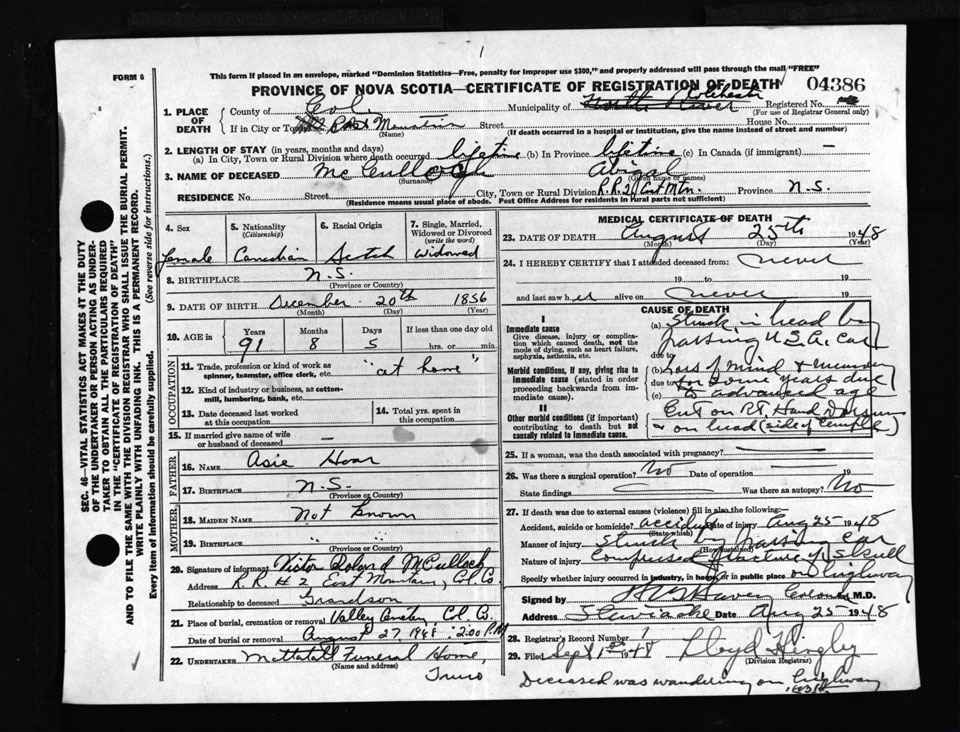 1
FORM 6
This form if placed in an envelope, marked "Dominion Statistics—Free, penalty for improper use $300," and properly addressed will pass through the mail "FREE"
PROVINCE OF NOVA SCOTIA—CERTIFICATE OF REGISTRATION OF DEATH 04386
1. PLACE OF DEATH
County of Col. Municipality of Colchester Registered No.
(For use of Registrar General only)
If in City or Town East Mountain Street House No.
(Name) (If death occurred in a hospital or institution, give the name instead of street and number)
2. LENGTH OF STAY (in years, months and days)
(a) In City, Town or Rural Division where death occurred lifetime (b) In Province lifetime (c) In Canada (if immigrant) —
3. NAME OF DECEASED McCullough Abigal
(Surname) (Given name or names)
RESIDENCE No. Street City, Town or Rural Division R.R. 2, East Mtn. Province N.S.
(Residence means usual place of abode. Post Office Address for Residents in Rural parts not sufficient)
SEC. 46—VITAL STATISTICS ACT MAKES AT THE DUTY
OF THE UNDERTAKER OR PERSON ACTING AS UNDER-
TAKER TO OBTAIN ALL THE PARTICULARS REQUIRED
IN THE "CERTIFICATE OF REGISTRATION OF DEATH"
AND TO FILE THE SAME WITH THE DIVISION REGISTRAR WHO SHALL ISSUE THE BURIAL PERMIT.
WRITE PLAINLY WITH UNFADING INK. THIS IS A PERMANENT RECORD.
Every item of information should be carefully supplied. (See reverse side for instructions.)
4. Sex 5. Nationality (Citizenship) 6. Racial Origin 7. Single, Married, Widowed or Divorced (write the word)
female Canadian Scotch Widowed
8. BIRTHPLACE N.S.
(Province or Country)
9. DATE OF BIRTH December 20th 1856
(Month) (Day) (Year)
10. AGE in Years Months Days If less than one day old
91 8 5 hrs. or min.
OCCUPATION
11. Trade, profession or kind of work as spinner, teamster, office clerk, etc. "at home"
12. Kind of industry or business, as cotton-mill, lumbering, bank, etc.
13. Date deceased last worked at this occupation 14. Total yrs. spent in this occupation
15. If married give name of wife or husband of deceased —
FATHER
16. NAME Asie Hoar
17. BIRTHPLACE N.S.
(Province or Country)
MOTHER
18. MAIDEN NAME Not Known
19. BIRTHPLACE " "
(Province or Country)
20. Signature of informant Victor Roland McCulloch
Address R.R. # 2 East Mountain, Col. Co.
Relationship to deceased Grandson
21. Place of burial, cremation or removal Valley Cemetery, Col. Co.
Date of burial or removal August 27, 1948 2:00 P.M
22. UNDERTAKER Mattatall Funeral Home,
(Name and address) Truro
MEDICAL CERTIFICATE OF DEATH
23. DATE OF DEATH August 25th 1948
(Month) (Day) (Year)
24. I HEREBY CERTIFY that I attended deceased from: never
19 to 19
and last saw her alive on never 19
CAUSE OF DEATH
I
Immediate cause
Give disease, injury or complication which caused death, not the mode of dying, such as heart failure, asphyxia, asthenia, etc.
Morbid conditions, if any, giving rise to immediate cause (stated in order proceeding backwards from immediate).
II
Other morbid conditions (if important) contributing to death but not causally related to immediate cause.
(a) Struck in head by
due to passing U.S.A. Car
(b) loss of mind & memory
due to for some years due
(c) to advanced age
Cut on Rt. Hand
on head (side of temple)
25. If a woman, was the death associated with pregnancy? —
26. Was there a surgical operation? No Date of operation — 19
State findings — Was there an autopsy? No
27. If death was due to external causes (violence) fill in also the following:—
Accident, suicide or homicide? accident Date of injury Aug 25 1948
(State which)
Manner of injury struck by passing car
(How sustained)
Nature of injury Compressed fracture of Skull
Specify whether injury occurred in industry, in home or in public place on highway
Signed by Coroner M.D.
Address Stewiacke Date Aug 25 1948
28. Registrar's Record Number 1
29. Filed Sept 1st 1948 Lloyd
(Division Registrar)
Deceased was wandering on highway